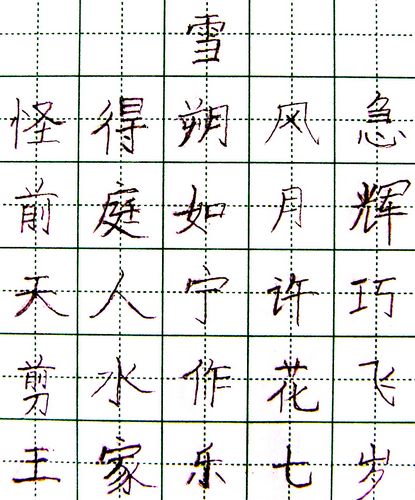 雪
怪得朔风急
前庭如月辉
天人宁许巧
剪水作花飞
王家乐七岁